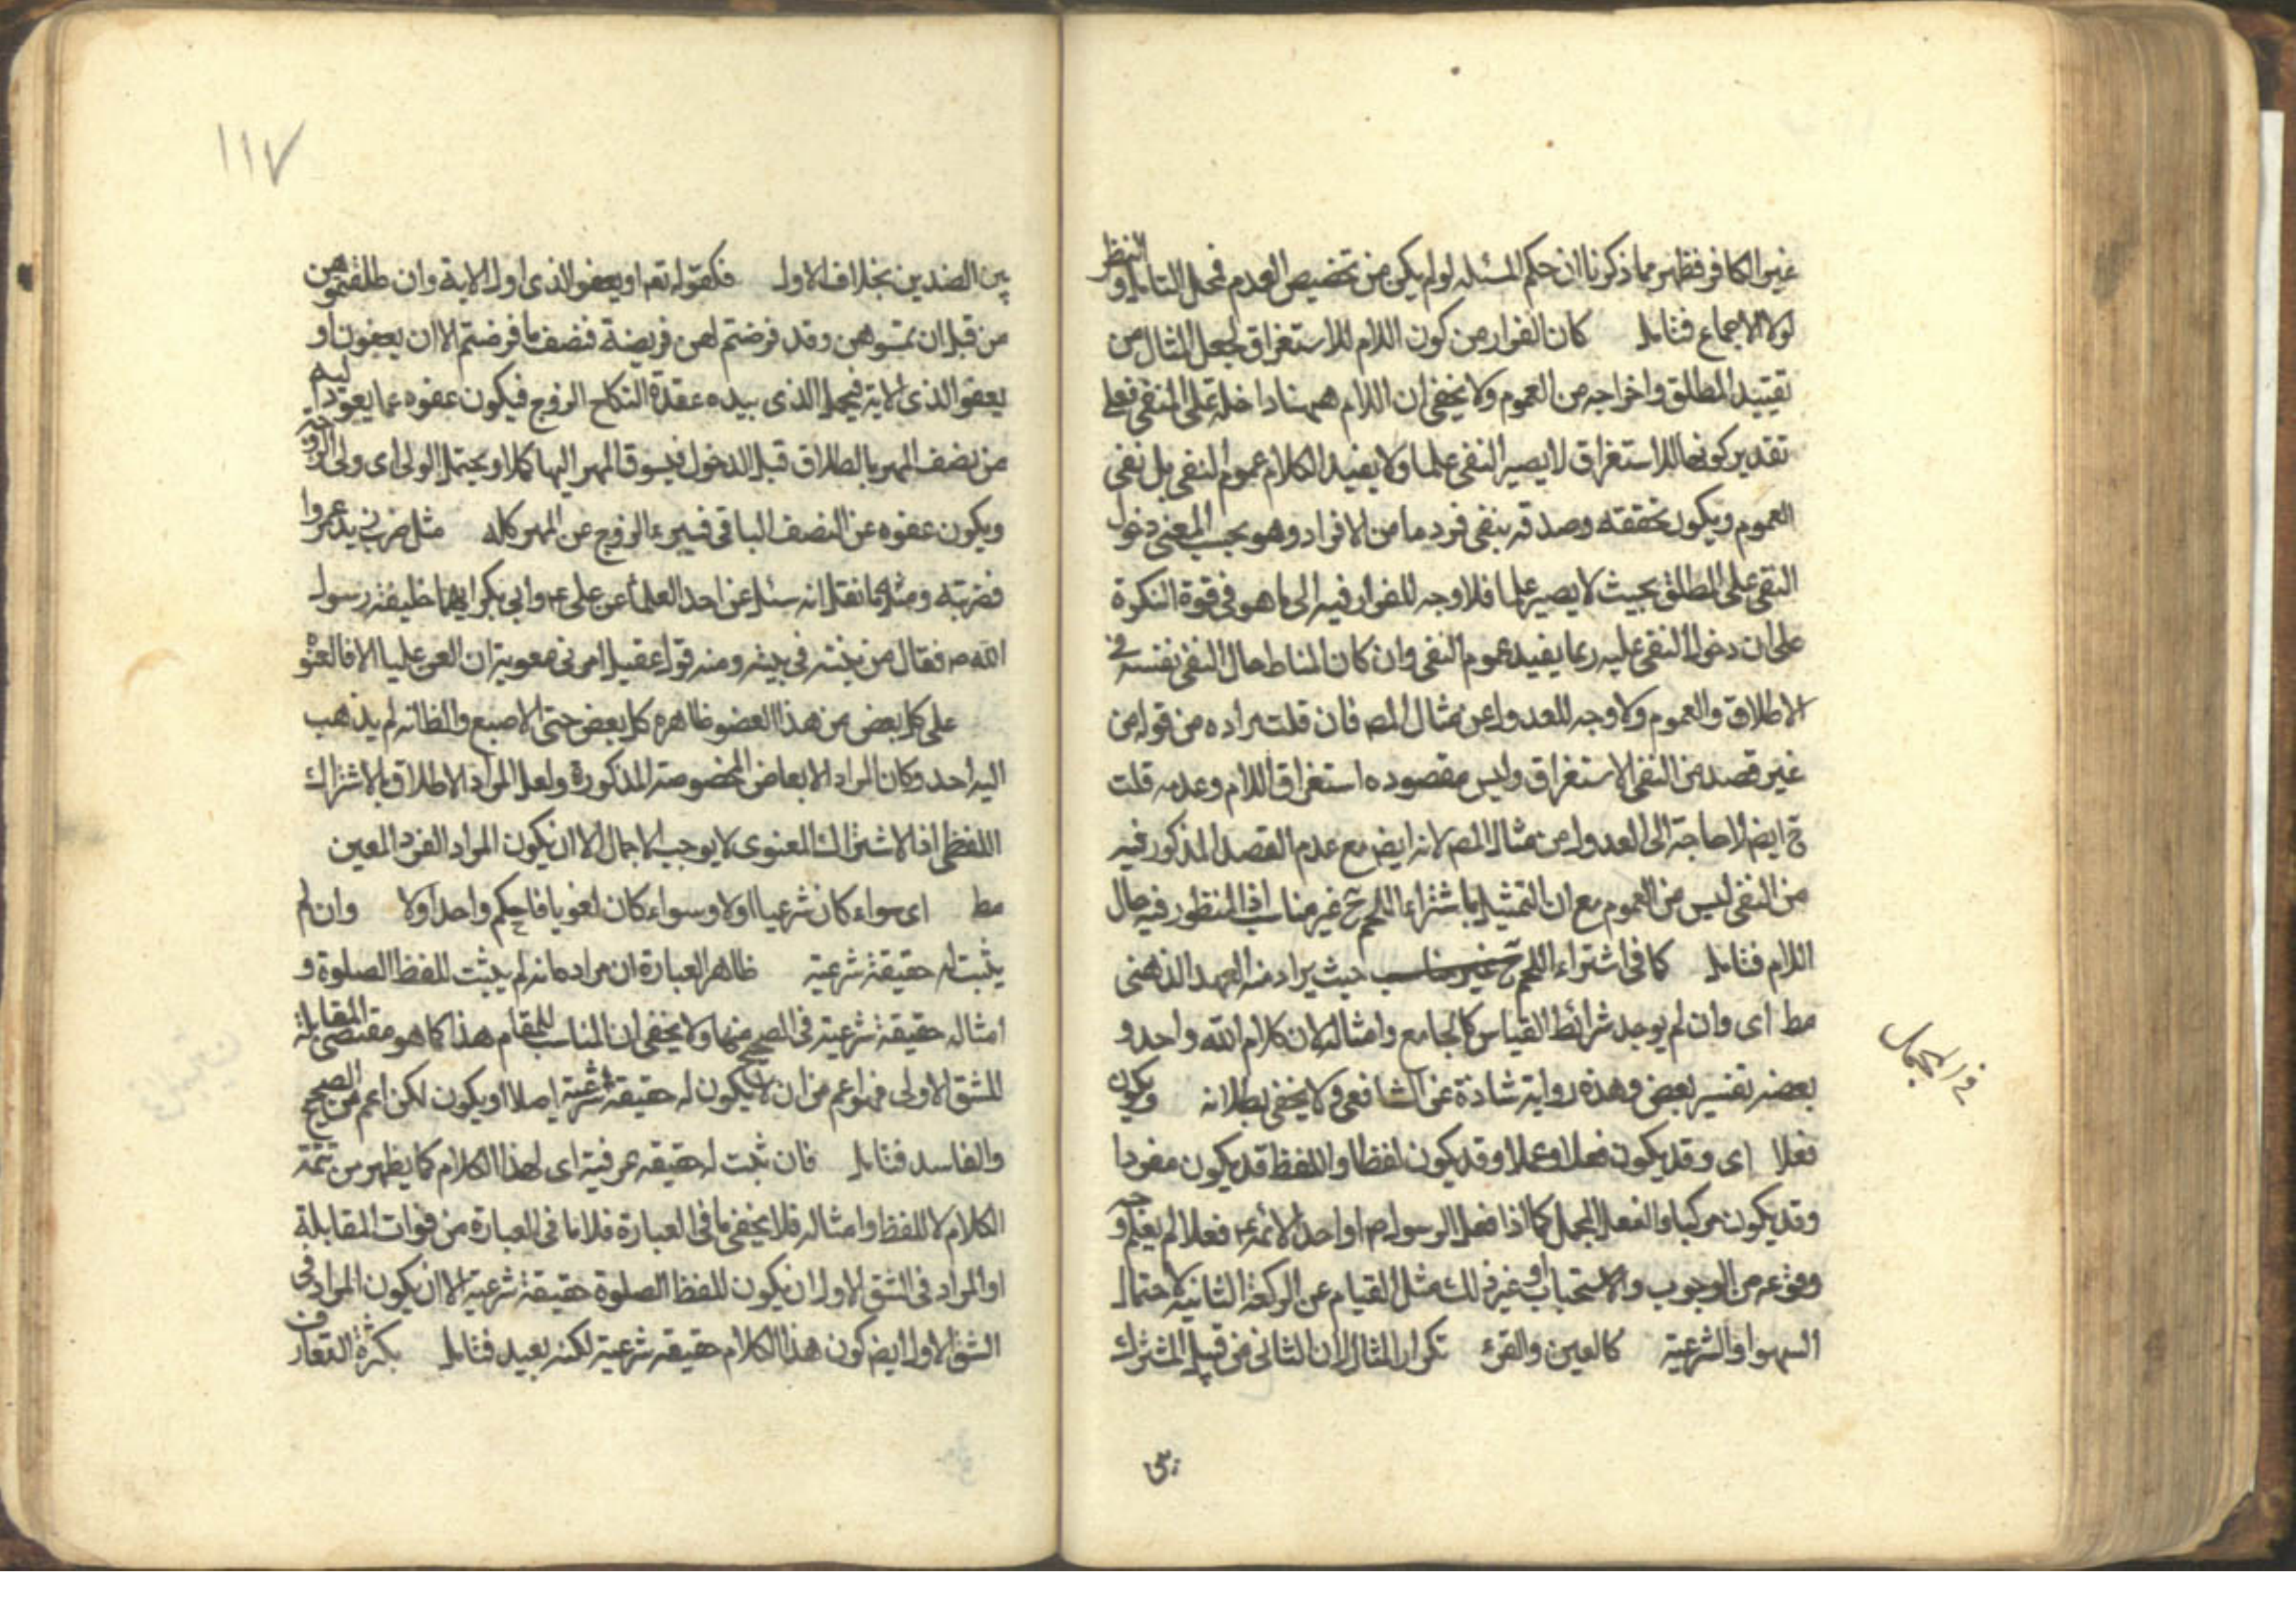 غير الكافر فظهر مما ذكرنا ان حكم المسئله لو لم يكن من تخصيص العدم فمحل التامل والنظر
لولا الاجماع فتامل كان الفرار من كون اللام للاستغراق لجعل المثال من
تقييد المطلق واخراجه من العموم ولا يخفى ان اللام ههنا داخلة على المنفى فعلى
تقدير كونها للاستغراق لا يصير النفى علما ولا يفيد الكلام عموم النفى بل نفى
العموم ويكون تحققه وصدقه بنفى فرد ما من الافراد وهو بحسب المعنى دخول
النفى على المطلق بحيث لا يصير علما فلا وجه للفرار فيه الى ما هو فى قوة النكرة
على ان دخول النفى عليه ربما يفيد عموم النفى وان كان المناط حال النفى نفسه فى
الاطلاق والعموم ولا وجه للعدول عن مثال المص فان قلت مراده من قوله من
غير قصد من النفى الاستغراق وليس مقصوده استغراق اللام وعدمه قلت
ح ايض لا حاجة الى العدول من مثال المص لانه ايض مع عدم القصد المذكور فيه
من النفى ليس من العموم مع ان التمثيل بما شتراء اللحم ح غير مناسب اذ المنظور فيه حال
اللام فتامل كما فى اشتراء اللحم ح غير مناسب حيث يراد منه العهد الذهنى
مط اى وان لم يوجد شرائط القياس كالجامع وامثاله لان كلام الله واحد و
بعضه تفسير بعض وهذه رواية شاذة عن الشافعى ولا يخفى بطلانه ويكون
فعلا اى وقد يكون فعلا وعملا وقد يكون لفظا واللفظ قد يكون مفردا
وقد يكون مركبا والفعل المجمل كما اذا فعل الرسول ص او احد الائمة ع فعلا لم يعلم وجه
وقوعه من الوجوب والاستحباب او غير ذلك مثل القيام عن الركعة الثانية لاحتمال
السهو او الشرعية كالعين والقرء تكرار المثال لان الثانى من قبيل المشترك
فى المجمل
بين
١١٧
بين الضدين بخلاف الاول فكقوله تعم او يعفو الذى اول الاية وان طلقتموهن
من قبل ان تمسوهن وقد فرضتم لهن فريضة فنصف ما فرضتم الا ان يعفون او
يعفو الذى الاية فيحمل الذى بيده عقدة النكاح الزوج فيكون عفوه عما يعود اليه
من نصف المهر بالطلاق قبل الدخول فيسوق المهر اليها كملا ويحتمل الولى اى ولى الزوجة
ويكون عفوه عن النصف الباقى فيبرء الزوج عن المهر كله مثل ضرب زيد عمروا
فضربته ومثل ما نقل انه سئل عن احد العلماء عن على ع وابى بكر ايهما خليفة رسول
الله ص فقال من بنته فى بيته ومنه قول عقيل امرنى معوية ان العن عليا الا فالعنوه
على كل بعض من هذا العضو ظاهره كل بعض حتى الاصبع والظ انه لم يذهب
اليه احد وكان المراد الابعاض المخصوصة المذكورة ولعل المراد الاطلاق بالاشتراك
اللفظى اذ الاشتراك المعنوى لا يوجب الاجمال الا ان يكون المراد الفرد المعين
مط اى سواء كان شرعيا اولا وسواء كان لغويا ذا حكم واحد اولا وان لم
يثبت له حقيقة شرعية ظاهر العبارة ان مراده انه لم يثبت للفظ الصلوة و
امثاله حقيقة شرعية فى الصحيح منها ولا يخفى ان المناسب للمقام هذا كما هو مقتضى المقابلة
للشق الاولى فهو اعم من ان لا يكون له حقيقة شرعية اصلا او يكون لكن اعم من الصحيح
والفاسد فتامل فان ثبت له حقيقه عرفية اى لهذا الكلام كما يظهر من تتمة
الكلام لا للفظ وامثاله فلا يخفى ما فى العبارة فلانا فى العبارة من فوات المقابلة
او المراد فى الشق الاول ان يكون للفظ الصلوة حقيقة شرعية الا ان يكون المراد فى
الشق الاول ايض كون هذا الكلام حقيقه شرعية لكنه بعيد فتامل بكثرة التعارف